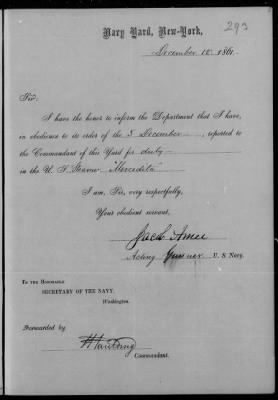 Navy Yard, New-York,
293
December 10 1861.
Sir:
I have the honor to inform the Department that I have,
in obedience to its order of the 3 December, reported to
the Commandant of this Yard for duty
in the U. S. Steamer "Mercedita"
I am, Sir, very respectfully,
Your obedient servant,
Jacob Amee
Acting Gunner U. S. Navy.
To the Honorable
SECRETARY OF THE NAVY,
Washington.
Forwarded by
Commandant.